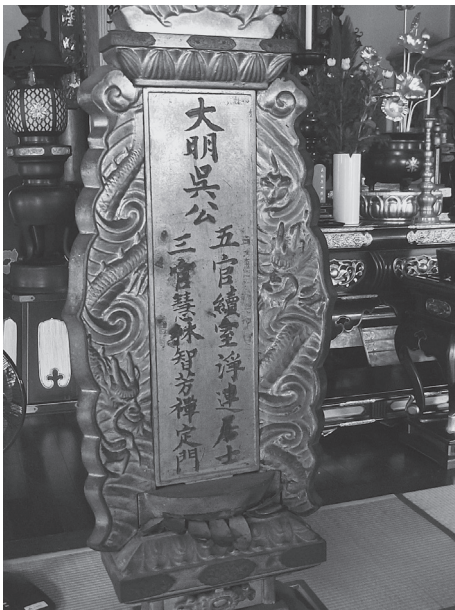 大明吳公
五官續室淨連居士
三官慧珠智芳禅定門